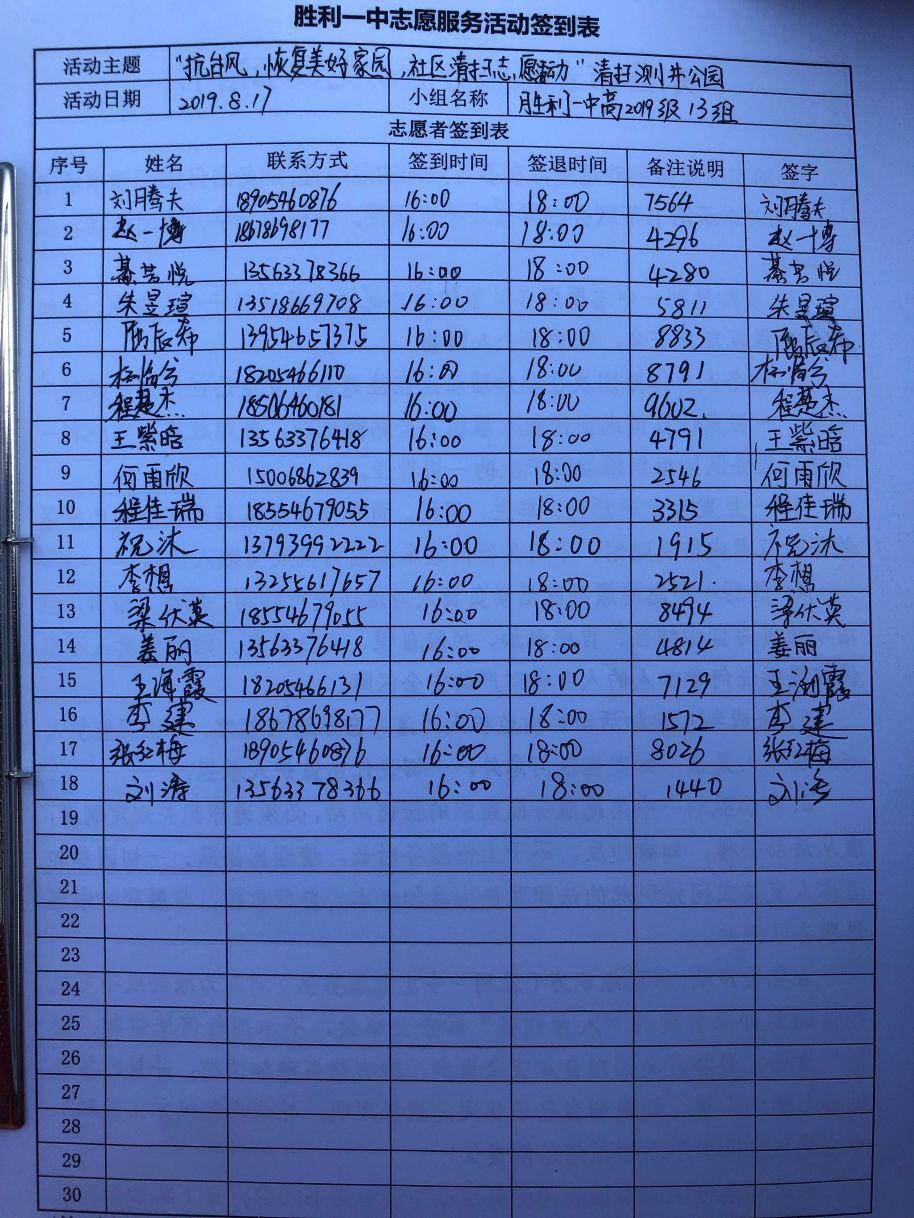 胜利一中志愿服务活动签到表
活动主题 "抗台风，恢复美好家园，社区清扫志愿活动"清扫测井公园
活动日期 2019.8.17 小组名称 胜利一中高2019级13组
志愿者签到表
序号 姓名 联系方式 签到时间 签退时间 备注说明 签字
1 刘腾夫 18905460876 16:00 18:00 7564 刘腾夫
2 赵一博 18678698177 16:00 18:00 4296 赵一博
3 綦若悦 13563378366 16:00 18:00 4280 綦若悦
4 朱昱瑄 13518669708 16:00 18:00 5811 朱昱瑄
5 13954657375 16:00 18:00 8833
6 18205466110 16:00 18:00 8791
7 程楚杰 18506460181 16:00 18:00 9602. 程楚杰
8 王紫晗 13563376418 16:00 18:00 4791 王紫晗
9 何雨欣 15006862839 16:00 18:00 2546 何雨欣
10 程佳瑞 18554679055 16:00 18:00 3315 程佳瑞
11 祝沐 13793992222 16:00 18:00 1915 祝沐
12 李想 13255617657 16:00 18:00 2521. 李想
13 梁伏英 18554679055 16:00 18:00 8494 梁伏英
14 姜丽 13563376418 16:00 18:00 4814 姜丽
15 王海霞 18205466131 16:00 18:00 7129 王海霞
16 李建 18678698177 16:00 18:00 1572 李建
17 张红梅 18905460876 16:00 18:00 8026 张红梅
18 刘涛 13563378366 16:00 18:00 1440 刘涛
19
20
21
22
23
24
25
26
27
28
29
30